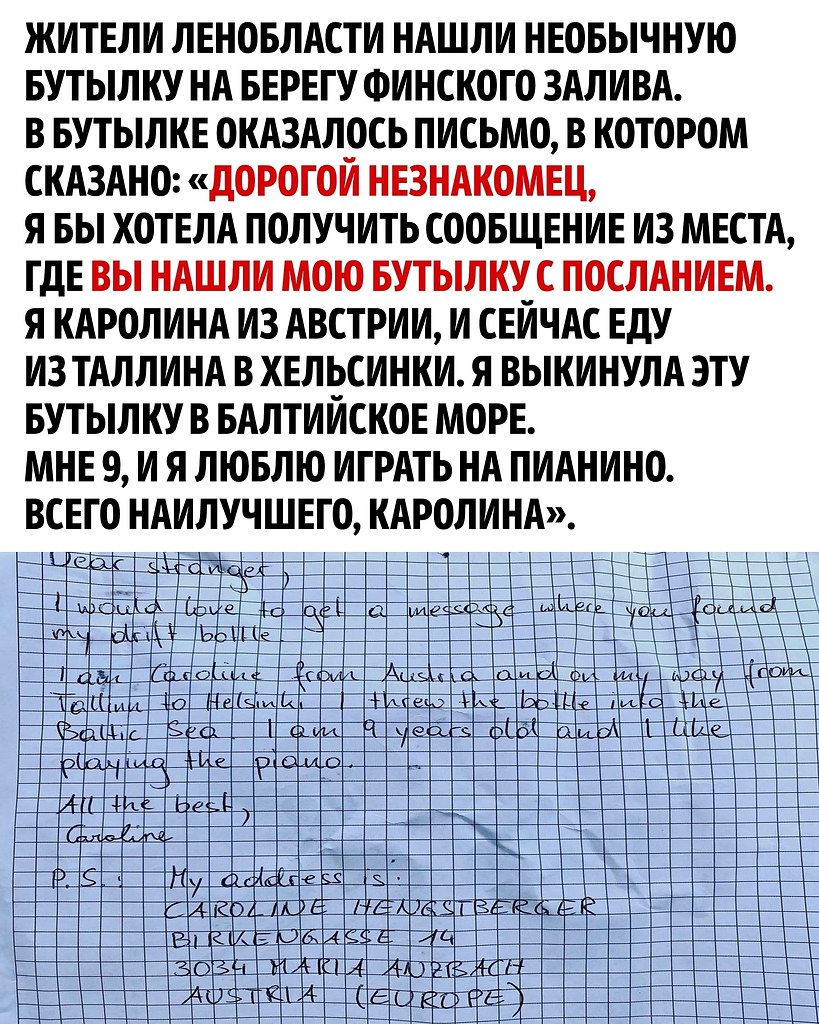 ЖИТЕЛИ ЛЕНОБЛАСТИ НАШЛИ НЕОБЫЧНУЮ
БУТЫЛКУ НА БЕРЕГУ ФИНСКОГО ЗАЛИВА.
В БУТЫЛКЕ ОКАЗАЛОСЬ ПИСЬМО, В КОТОРОМ
СКАЗАНО: «ДОРОГОЙ НЕЗНАКОМЕЦ,
Я БЫ ХОТЕЛА ПОЛУЧИТЬ СООБЩЕНИЕ ИЗ МЕСТА,
ГДЕ ВЫ НАШЛИ МОЮ БУТЫЛКУ С ПОСЛАНИЕМ.
Я КАРОЛИНА ИЗ АВСТРИИ, И СЕЙЧАС ЕДУ
ИЗ ТАЛЛИНА В ХЕЛЬСИНКИ. Я ВЫКИНУЛА ЭТУ
БУТЫЛКУ В БАЛТИЙСКОЕ МОРЕ.
МНЕ 9, И Я ЛЮБЛЮ ИГРАТЬ НА ПИАНИНО.
ВСЕГО НАИЛУЧШЕГО, КАРОЛИНА».
Dear stranger,
I would love to get a message where you found
my drift bottle.
I am Caroline from Austria and on my way from
Tallinn to Helsinki I threw the bottle into the
Baltic Sea. I am 9 years old and I like
playing the piano.
All the best,
Caroline
P.S.: My address is:
CAROLINE HENGSTBERGER
BIRKENGASSE 14
3034 MARIA ANZBACH
AUSTRIA (EUROPE)